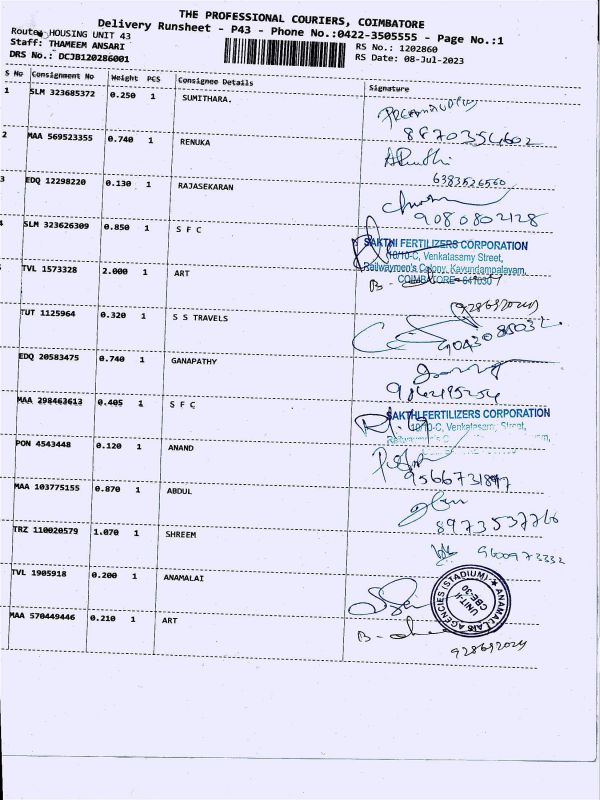 THE PROFESSIONAL COURIERS, COIMBATORE
Delivery Runsheet - P43 - Phone No.:0422-3505555 - Page No.:1
Route: HOUSING UNIT 43
Staff: THAMEEM ANSARI RS No.: 1202860
DRS No.: DCJB120286001 RS Date: 08-Jul-2023
S No Consignment No Weight PCS Consignee Details Signature
1 SLM 323685372 0.250 1 SUMITHARA.
8870354602
2 MAA 569523355 0.740 1 RENUKA
6383526560
3 EDQ 12298220 0.130 1 RAJASEKARAN
9080802128
4 SLM 323626309 0.850 1 S F C
SAKTHI FERTILIZERS CORPORATION
10/10-C, Venkatasamy Street,
Railwaymen's Colony, Kavundampalayam,
COIMBATORE- 641030
TVL 1573328 2.000 1 ART
B-
TUT 1125964 0.320 1 S S TRAVELS
9043085032
EDQ 20583475 0.740 1 GANAPATHY
MAA 298463613 0.405 1 S F C
SAKTHI FERTILIZERS CORPORATION
10/10-C, Venkatasamy Street,
PON 4543448 0.120 1 ANAND
MAA 103775155 0.870 1 ABDUL
8973537766
TRZ 110020579 1.070 1 SHREEM
9600973332
TVL 1905918 0.200 1 ANAMALAI
ANAMALLAIS AGENCIES (STADIUM)
UNIT-II
CBE-30
MAA 570449446 0.210 1 ART
B-